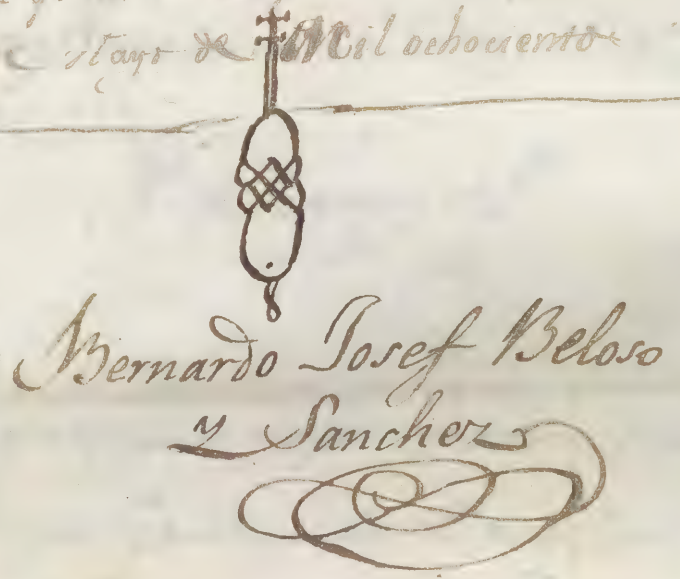 Mayo de Mil ochociento
Bernardo Josef Beloso
y Sanchez